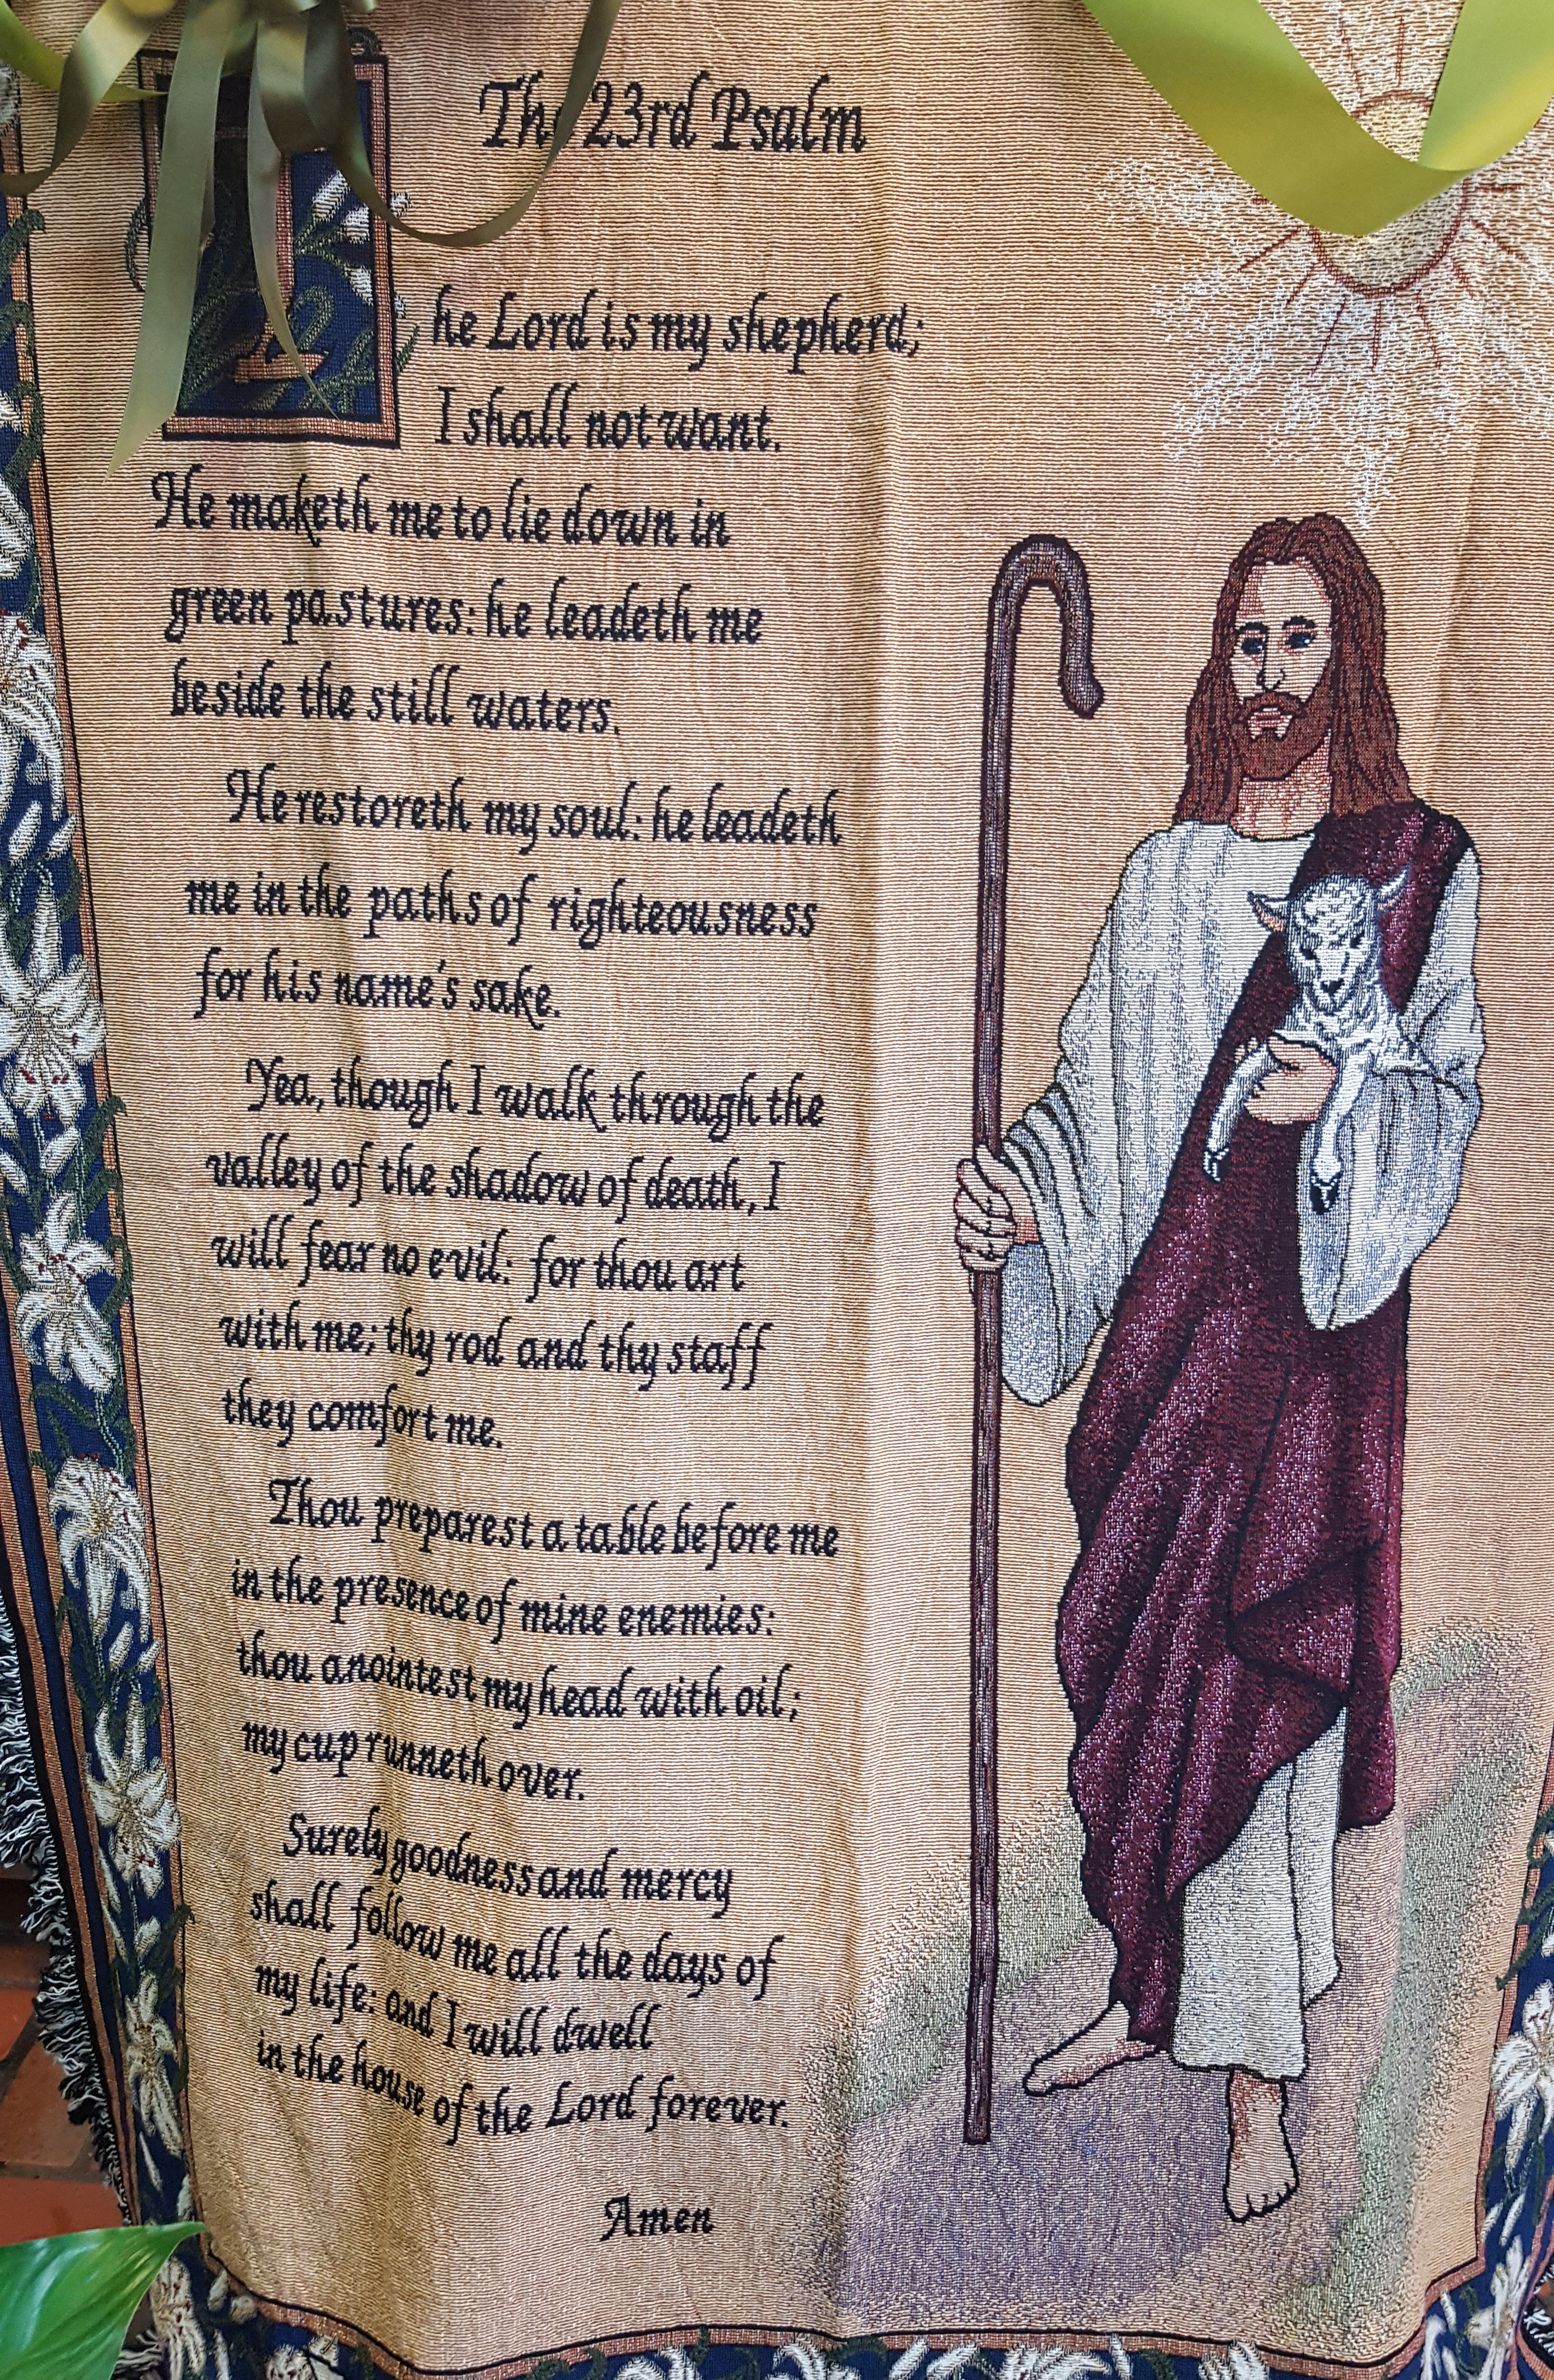 The 23rd Psalm
The Lord is my shepherd;
I shall not want.
He maketh me to lie down in
green pastures: he leadeth me
beside the still waters.
He restoreth my soul: he leadeth
me in the paths of righteousness
for his name's sake.
Yea, though I walk through the
valley of the shadow of death, I
will fear no evil: for thou art
with me; thy rod and thy staff
they comfort me.
Thou preparest a table before me
in the presence of mine enemies:
thou anointest my head with oil;
my cup runneth over.
Surely goodness and mercy
shall follow me all the days of
my life: and I will dwell
in the house of the Lord forever.
Amen